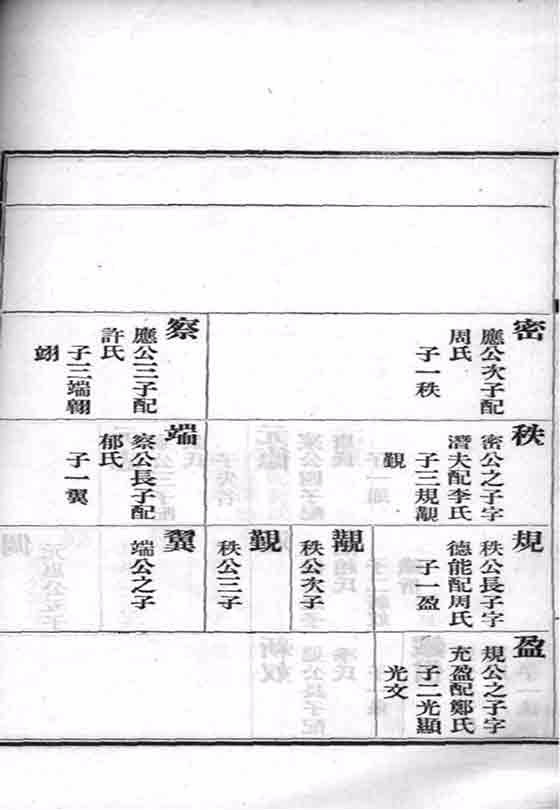 密
應公次子配
周氏
子一秩
察
應公三子配
許氏
子三端翱
翊
秩
密公之子字
潛夫配李氏
子三規覯
覲
端
察公長子配
郁氏
子一翼
規
秩公長子字
德能配周氏
子一盈
覯
秩公次子
覲
秩公三子
翼
端公之子
盈
規公之子字
充盈配鄭氏
子二光顯
光文